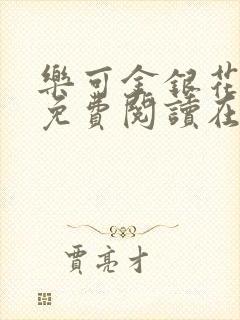 樂可金銀花
免費閱讀在
賈亮才